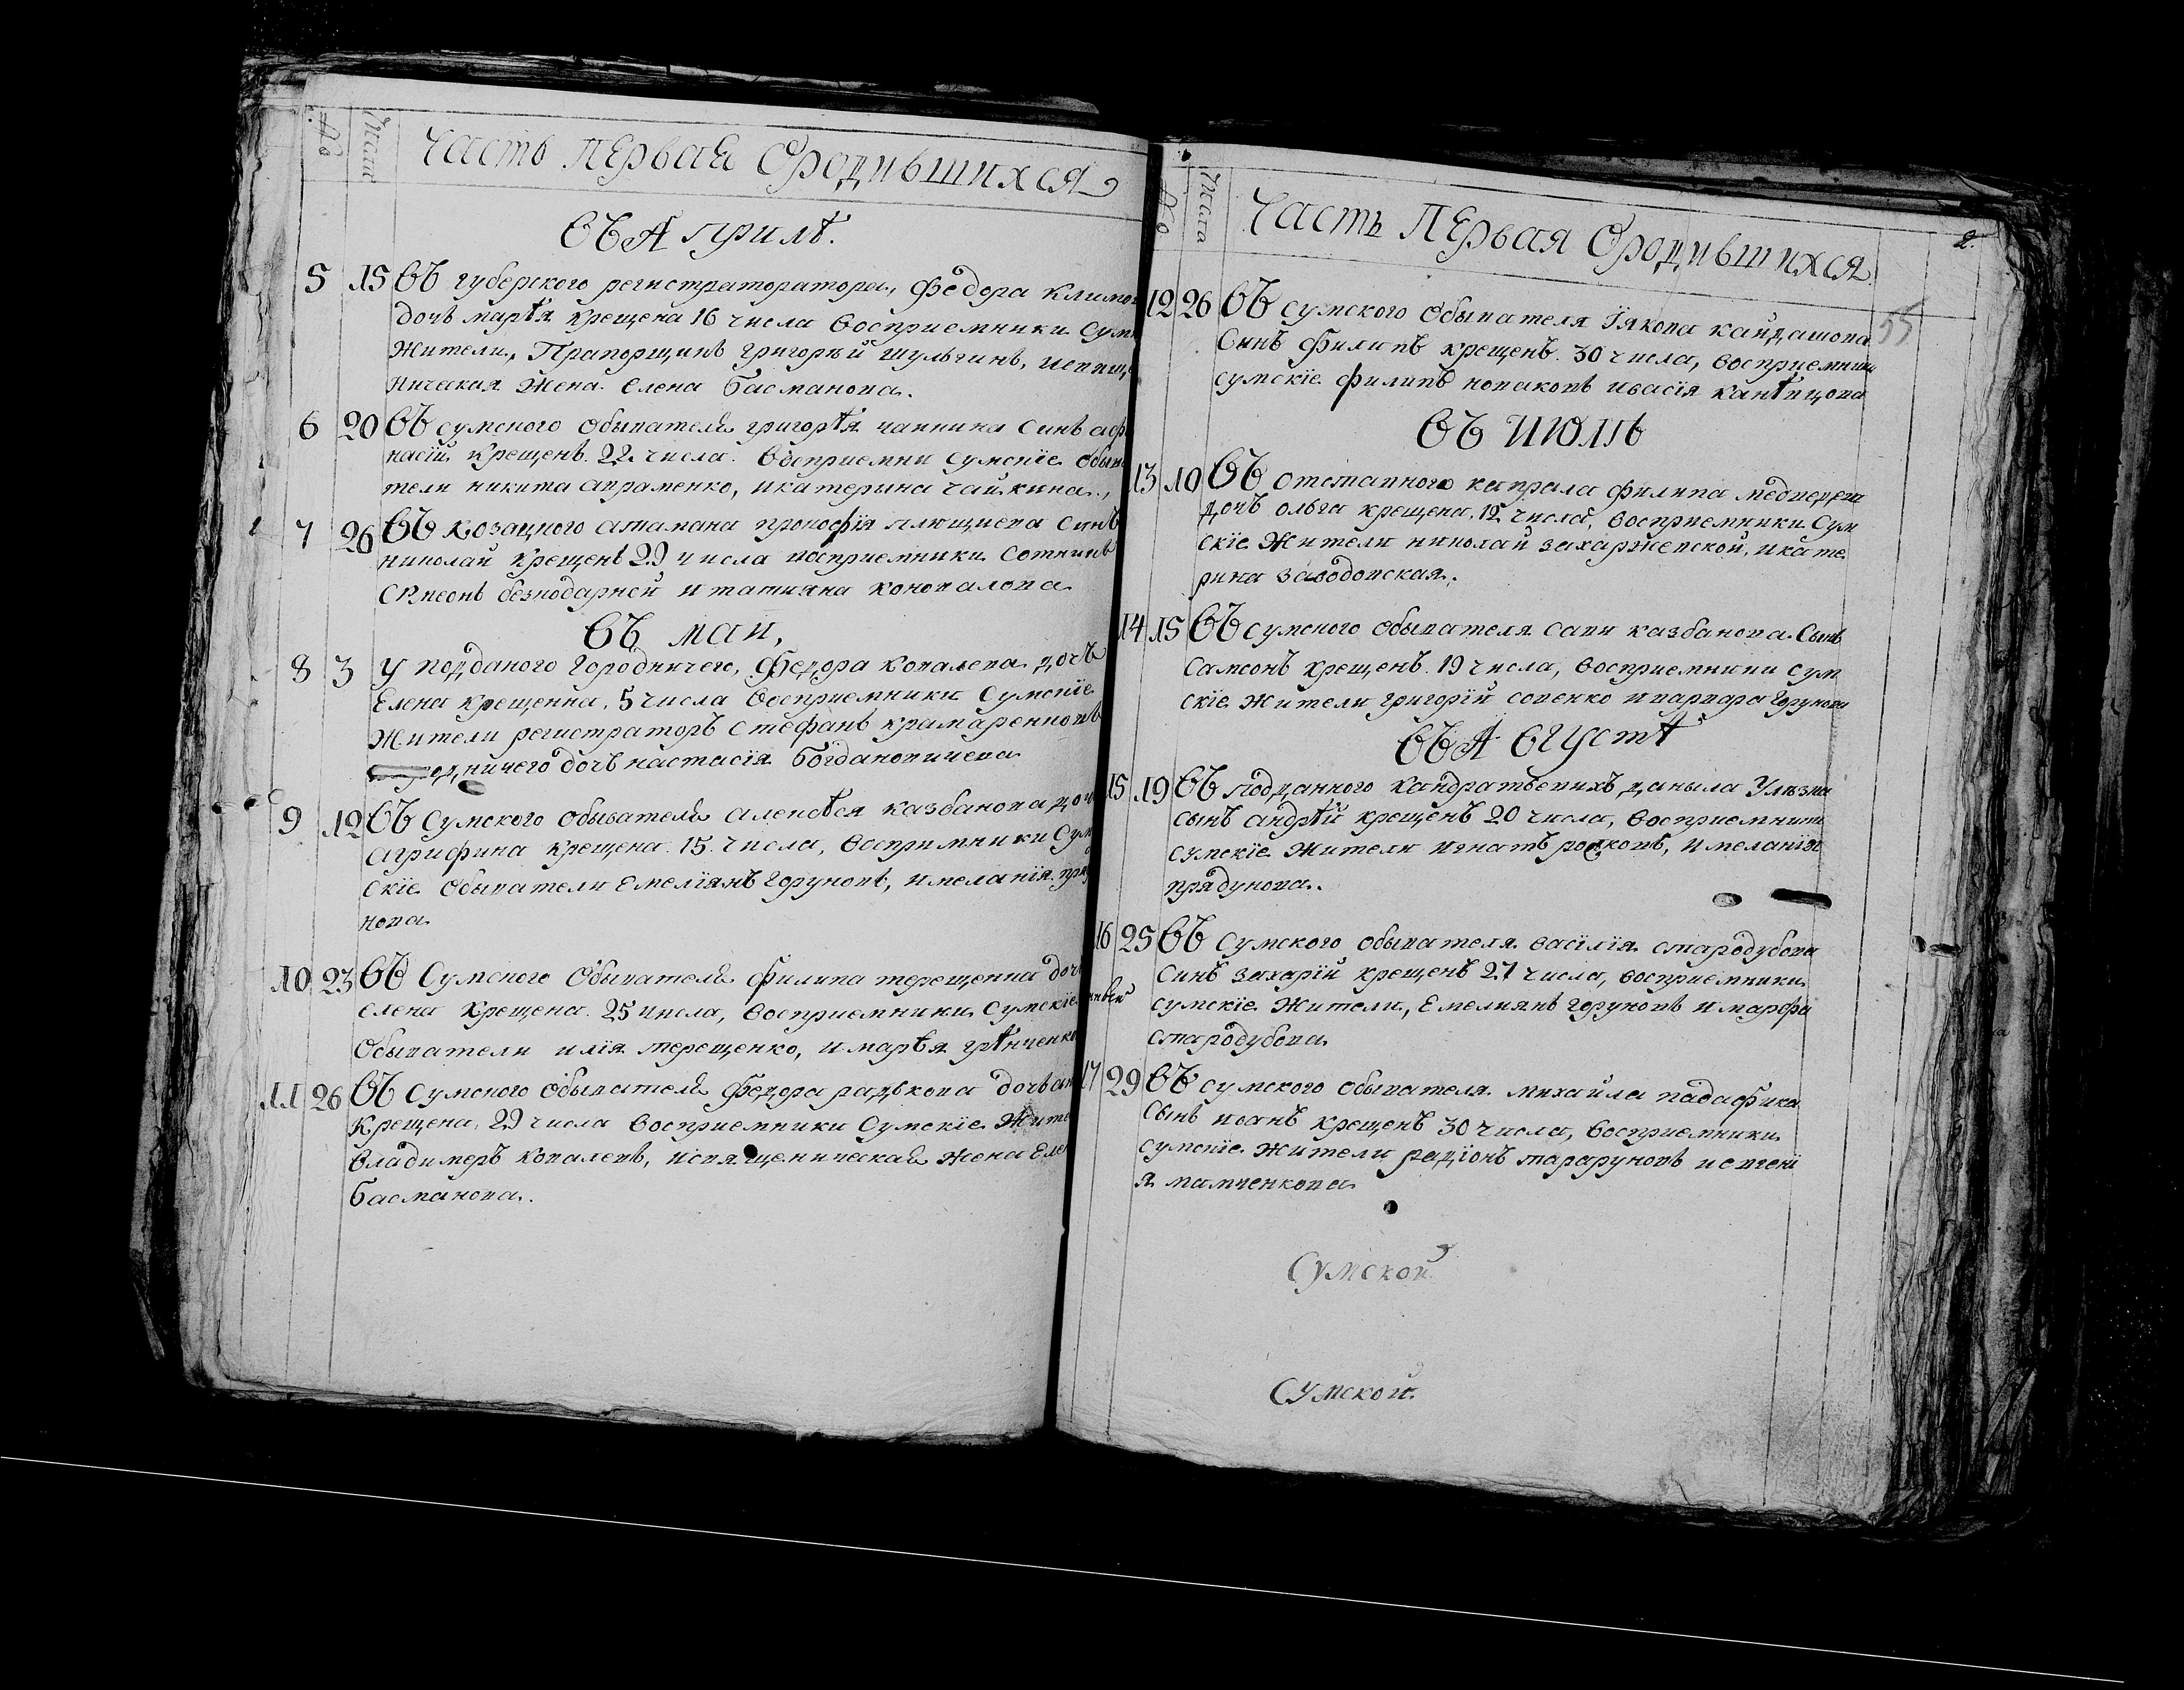 № Числа Часть Первая Ородившихся
Въ Априлѣ.
5 15 Въ губерского регистраторатора, Федора Климо
дочь марѣя крещена 16 числа восприемники Сум
Жители, Прапорщикъ григорѣй шульгинъ,
ническая жена елена Басманова.
6 20 Въ сумского обывателя григорѣя чаикина синъ аф
насій крещенъ 22 числа. восприемни сумскіе обыв
тели никита авраменко, икатерына чайкина,
7 26 Въ козацкого атамана прокофія плющиева синъ
николай крещенъ 29 числа восприемники Сотникъ
безкодарной и татияна коновалова
Въ маи,
8 3 У подданого городничего, Федора ковалева дочъ
Елена крещенна, 5 числа восприемники Сумскіе
Жители регистраторъ Стефанъ крамаренковъ
одничего дочъ настасія Богдановичева
9 12 Въ Сумского обывателя алексѣя казбанова доч
агрифина крещена 15 числа, воспримники Сум
скіе обыватели Емеліянъ Горуновъ, имеланія пря
нова
10 23 Въ Сумского обывателя филипа терещенка доч
елена крещена 25 числа, восприемники Сумскіе
обыватели илія терещенко, и марѣя грѣнченко
11 26 Въ Сумского обывателя федора радкова дочъ ан
крещена, 29 числа восприемники Сумскіе Жите
владимеръ ковалевъ, исвященическая жена Еле
басманова.
№ Числа Часть Первая Ородившихся 2.
12 26 Въ Сумского обывателя Іякова кайдашова 55
Синъ Филипъ крещенъ 30 числа, восприемники
сумскіе филипъ новаковъ ивасія
Въ Июлѣ
13 10 Въ отставного капрала филипа
дочъ ольга крещена, 12 числа, восприемники Сум
скіе Жители николай захаржевской, икате
рина заводовская.
14 15 Въ сумского обывателя Сави казбанова Сынъ
Самсонъ крещенъ 19 числа, восприемники Сум
скіе Жители григорій совенко иварвара Горунова
Въ Августѣ
15 19 Въ подданного кандратьевихъ, даныла
сынъ андрѣй крещенъ 20 числа, восприемники
сумскіе Жители игнатъ ровковъ, и меланія
прядунова.
16 25 Въ Сумского обывателя василія стародубова
Синъ захарій крещенъ 27 числа, восприемники
сумскіе Жители, Емелиянъ горуновъ и марфа
стародубова
17 29 Въ сумского обывателя михайла падафика
Сынъ иоанъ крещенъ 30 числа, восприемники
сумскіе Жители радіонъ тараруновъ и евгені
я мамченкова
Сумской
Сумской